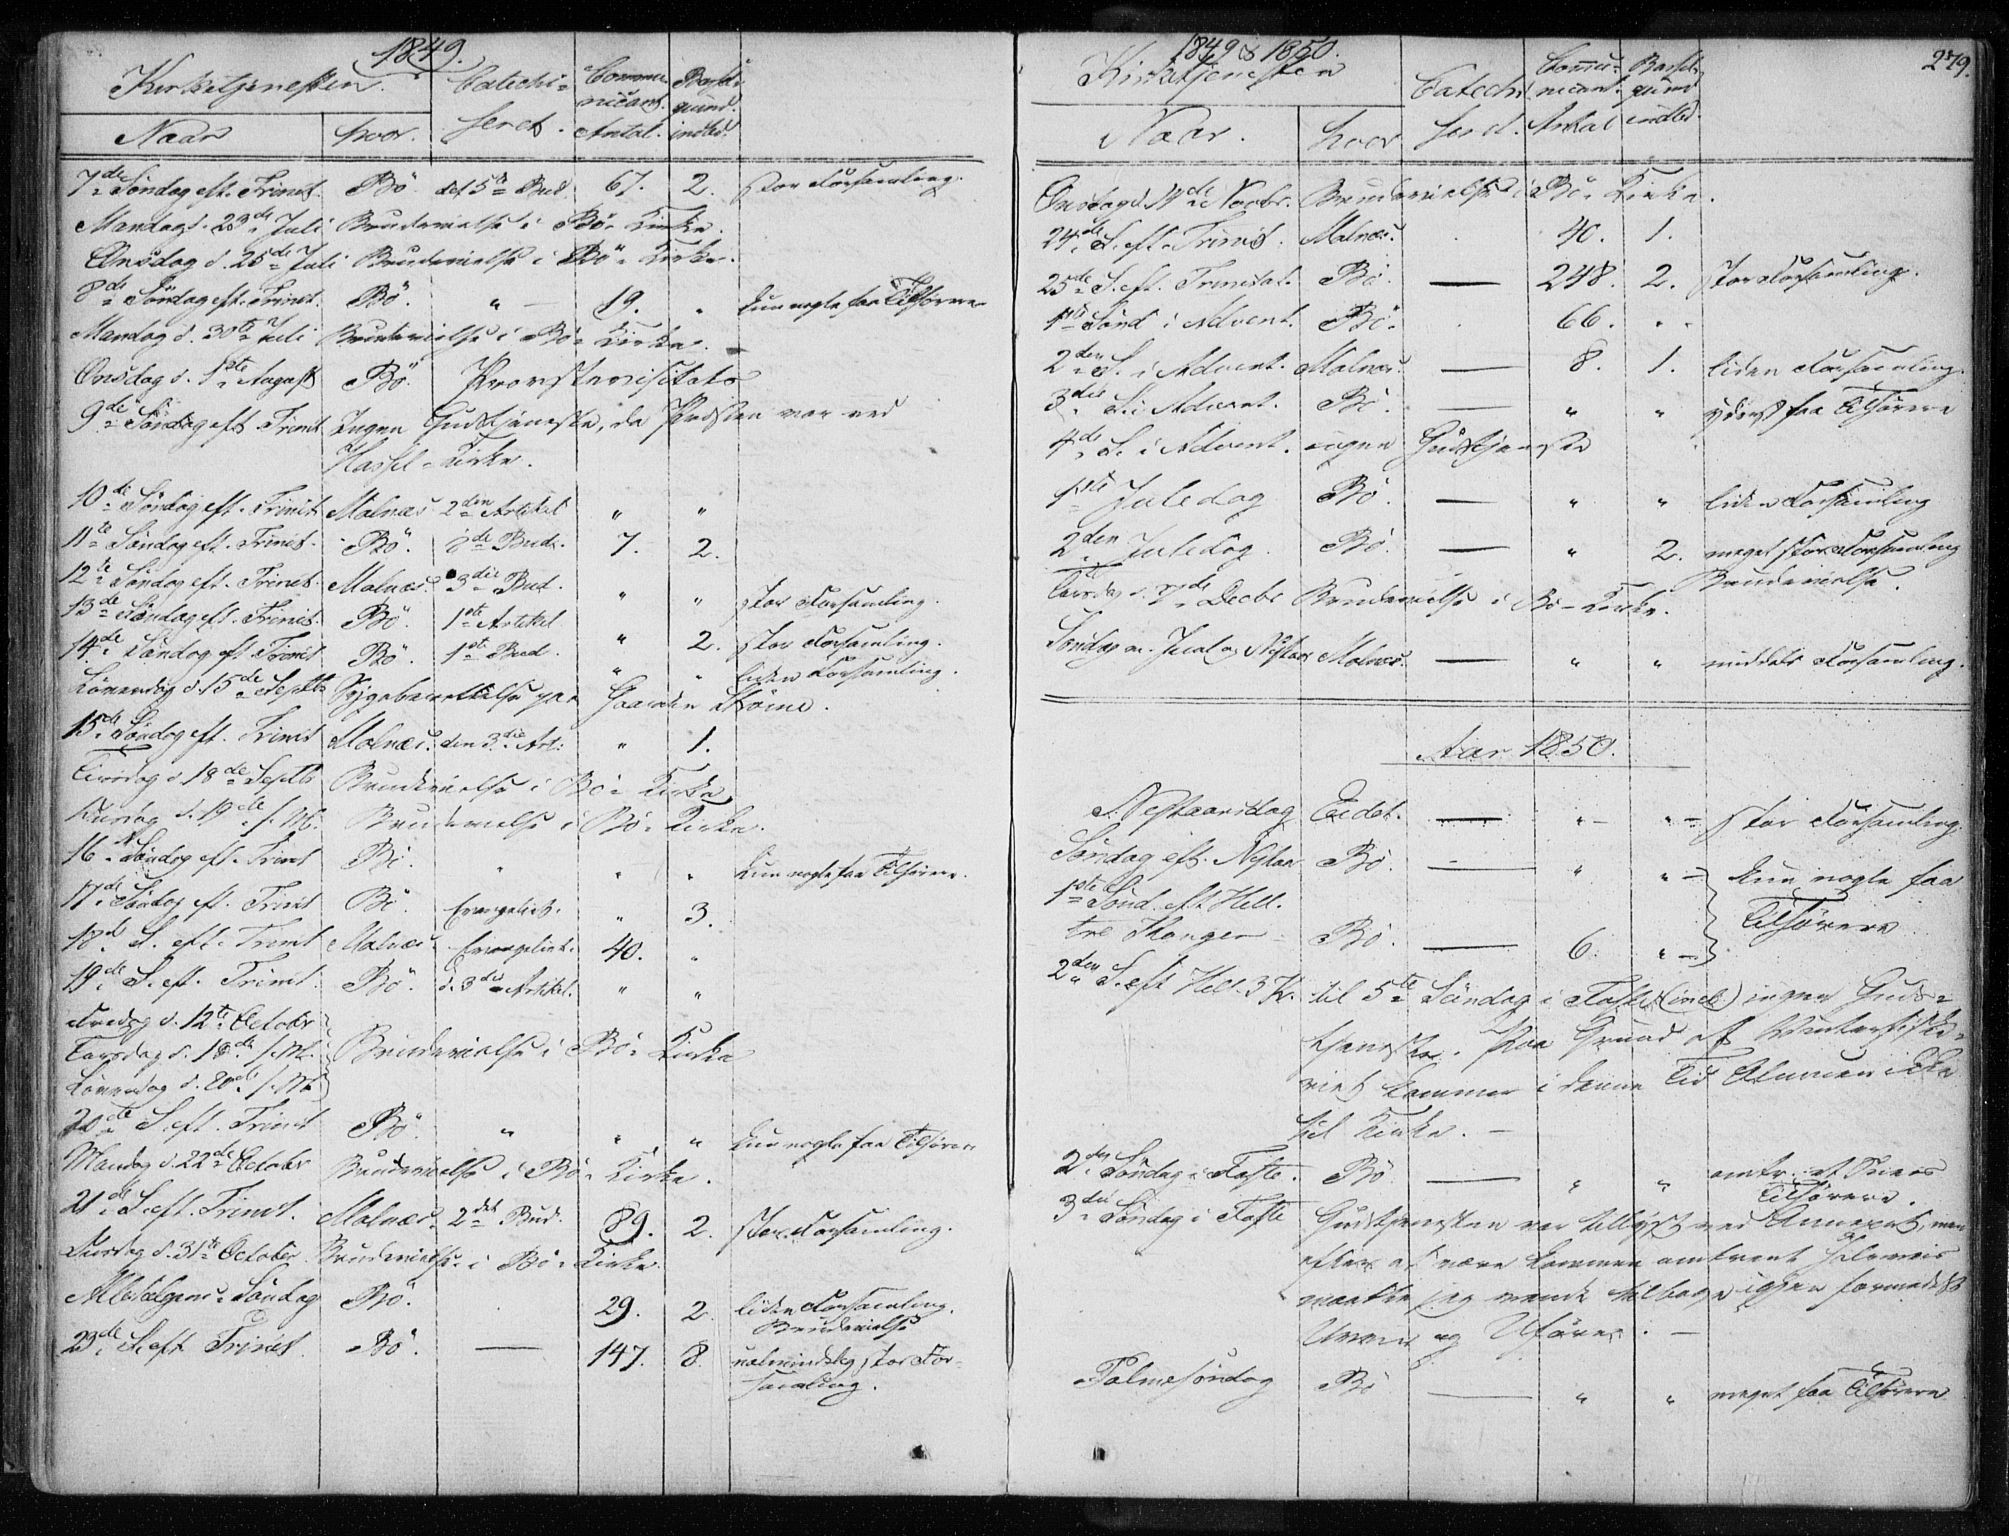 1849.
Kirketjenesten. Catechi- Commu- Barsel-
nicant. qvind.
Naar hvor. seret. Antal. indled.
7de Søndag eft. Trinit. Bø. det 5te Bud 67. 2. stor Forsamling.
Mandag d. 23de Juli Brudevielse i Bø-Kirke.
Onsdag d. 25de Juli Brudevielse i Bø-Kirke.
8de Søndag eft. Trinit. Bø. " — 19. " kun nogle faa Tilhørere
Mandag d. 30te Juli Brudevielse i Bø-Kirke.
Onsdag d. 1ste August Bø. Provstevisitats
9de Søndag eft. Trinit. Ingen Gudstjeneste, da Præsten var ved
Hassel-Kirke.
10de Søndag eft. Trinit Malnæs 2den Artikel " "
11te Søndag eft. Trinit. Bø. Bud. 7. 2.
12te Søndag eft. Trinit. Malnæs. 3die Bud. " " stor Forsamling.
13de Søndag eft. Trinit. Bø. 1ste Artikel " 2. stor Forsamling.
14de Søndag eft Trinit Bø. 1ste Bud. " " liden Forsamling.
Løverdag d. 15de Septbr Sygeberettelse paa Gaarden
15de Søndag eft. Trinit Malnæs. den 3die Art: " 1.
Tirsdag d. 18de Septbr Brudevielse i Bø-Kirke
Onsdag d. 19de s. M. Brudevielse i Bø-Kirke.
16de Søndag eft. Trinit Bø. " " " kun nogle faa Tilhørere.
17de Søndag eft. Trinit Bø. Evangeliet. " 3.
18de S. eft. Trinit Malnæs. Evangeliet. 40. "
19de S. eft. Trinit. Bø. d. 3die Artikel. " "
Fredag d. 12te Octobr
Torsdag d. 18de s. M. Brudevielse i Bø-Kirke
Løverdag d. 20de s. M.
20de S. eft. Trinit Bø. " " " kun nogle faa Tilhørere
Mandag d. 22de Octobr Brudevielse i Bø-Kirke.
21de S. eft. Trinit. Malnæs. 2det Bud. 89. 2. stor Forsamling.
Onsdag d. 31te October Brudevielse i Bø-Kirke.
Allehelgens-Søndag Bø. 29. 2. liden Forsamling.
Brudevielse
23de S. eft Trinit. Bø. — 147. 8. ualmindelig stor For-
samling.
1849 & 1850. 279.
Kirketjenesten Catechi- Commu- Barsel-
nicant. qvind
Naar. hvor seret. Antal indled.
Onsdag d. 14de Novbr. Brudevielse i Bø-Kirke.
24de S. eft. Trinit. Malnæs. 40. 1.
25de S. eft. Trinitat. Bø. — 248. 2. stor Forsamling.
1ste Sønd i Advent. Bø. 66. "
2den S. i Advent. Malnæs. — 8. 1. liden Forsamling.
3die S. i Advent. Bø. — " " yderst faa Tilhørere
4de S. i Advent. ingen Gudstjeneste
1ste Juledag Bø. — " " liden Forsamling
2den Juledag. Bø. — " 2. meget stor Forsamling
Brudevielse.
Decbr Brudevielse i Bø-Kirke.
Søndag m. Juul og Nytaar Malnæs. — " " middels Forsamling.
Aar 1850.
Nytaarsdag Eidet. — " " stor Forsamling.
Søndag eft. Nytaar Bø. — " " kun nogle faa
1ste Sønd. eft Hell. Tilhørere
tre Konger Bø. — 6. "
2den S. eft Hell. 3 K. til 5te Søndag i Faste (incl.) ingen Guds-
tjeneste. Paa Grund af Vinterfiske-
riet kommer i denne Tid Almuen ikke
til Kirke. —
2den Søndag i Faste. Bø. — " "
Tilhørere.
3die Søndag i Faste Gudstjenesten var tillyst ved Annexet, men
efter at være kommen omtrent halvveis
maatte jeg vende tilbage igjen formedelst
Uveir og Uføre. —
Palmesøndag Bø — " " meget faa Tilhørere